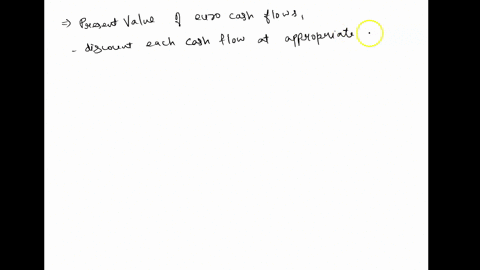 ⇒ Present Value of euro cash flows,
- discount each cash flow at appropriate